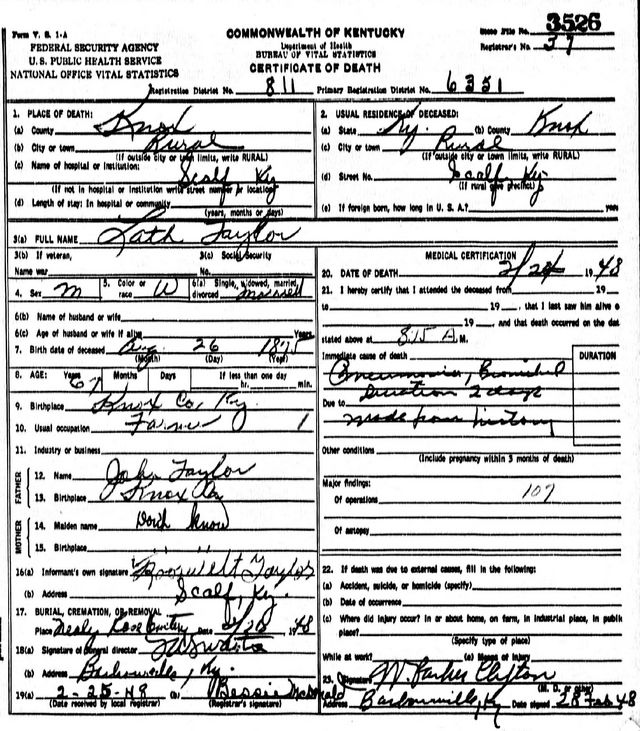 Form V. S. 1-A
FEDERAL SECURITY AGENCY
U. S. PUBLIC HEALTH SERVICE
NATIONAL OFFICE VITAL STATISTICS
COMMONWEALTH OF KENTUCKY
Department of Health
BUREAU OF VITAL STATISTICS
CERTIFICATE OF DEATH
File No. 3526
Registrar's No. 37
Registration District No. 811 Primary Registration District No. 6351
1. PLACE OF DEATH:
(a) County Knox
(b) City or town Rural
(If outside city or town limits, write RURAL)
(c) Name of hospital or institution:
Scalf, Ky
(If not in hospital or institution write street number or location)
(d) Length of stay: In hospital or community
(years, months or days)
2. USUAL RESIDENCE OF DECEASED:
(a) State Ky. (b) County Knox
(c) City or town Rural
(If outside city or town limits, write RURAL)
(d) Street No. Scalf, Ky
(If rural give precinct)
(e) If foreign born, how long in U. S. A.? years
3(a) FULL NAME Lath Taylor
3(b) If veteran,
Name war
3(c) Social Security
No.
4. Sex M 5. Color or race W 6(a) Single, widowed, married, divorced Married
6(b) Name of husband or wife
6(c) Age of husband or wife if alive Years
7. Birth date of deceased Aug 26 1875
(Month) (Day) (Year)
8. AGE: Years 67 Months Days If less than one day
hr. min.
9. Birthplace Knox Co, Ky.
10. Usual occupation Farmer 1
11. Industry or business
FATHER
12. Name John Taylor
13. Birthplace Knox Co
MOTHER
14. Maiden name Don't Know
15. Birthplace
16(a) Informant's own signature Roosvelt Taylor
(b) Address Scalf, Ky.
17. BURIAL, CREMATION, OR REMOVAL
Place Date 2/28 1948
18(a) Signature of funeral director
(b) Address Barbourville, Ky.
19(a) 2-25-49 (b) Bessie McDonald
(Date received by local registrar) (Registrar's signature)
MEDICAL CERTIFICATION
20. DATE OF DEATH 2/24 1948
21. I hereby certify that I attended the deceased from 19
to 19 , that I last saw him alive o
19 , and that death occurred on the dat
stated above at 8:15 A. M.
Immediate cause of death DURATION
Pneumonia, Bronchial
Duration 2 days
Due to made from history
Other conditions
(Include pregnancy within 3 months of death)
Major findings:
Of operations 107
Of autopsy
22. If death was due to external causes, fill in the following:
(a) Accident, suicide, or homicide (specify)
(b) Date of occurrence
(c) Where did injury occur? In or about home, on farm, in industrial place, in public
place?
(Specify type of place)
While at work? (e) Means of injury
23. Signature W. Parker Clifton
(M. D. or other)
Address Barbourville, Ky Date signed 28 Feb 48